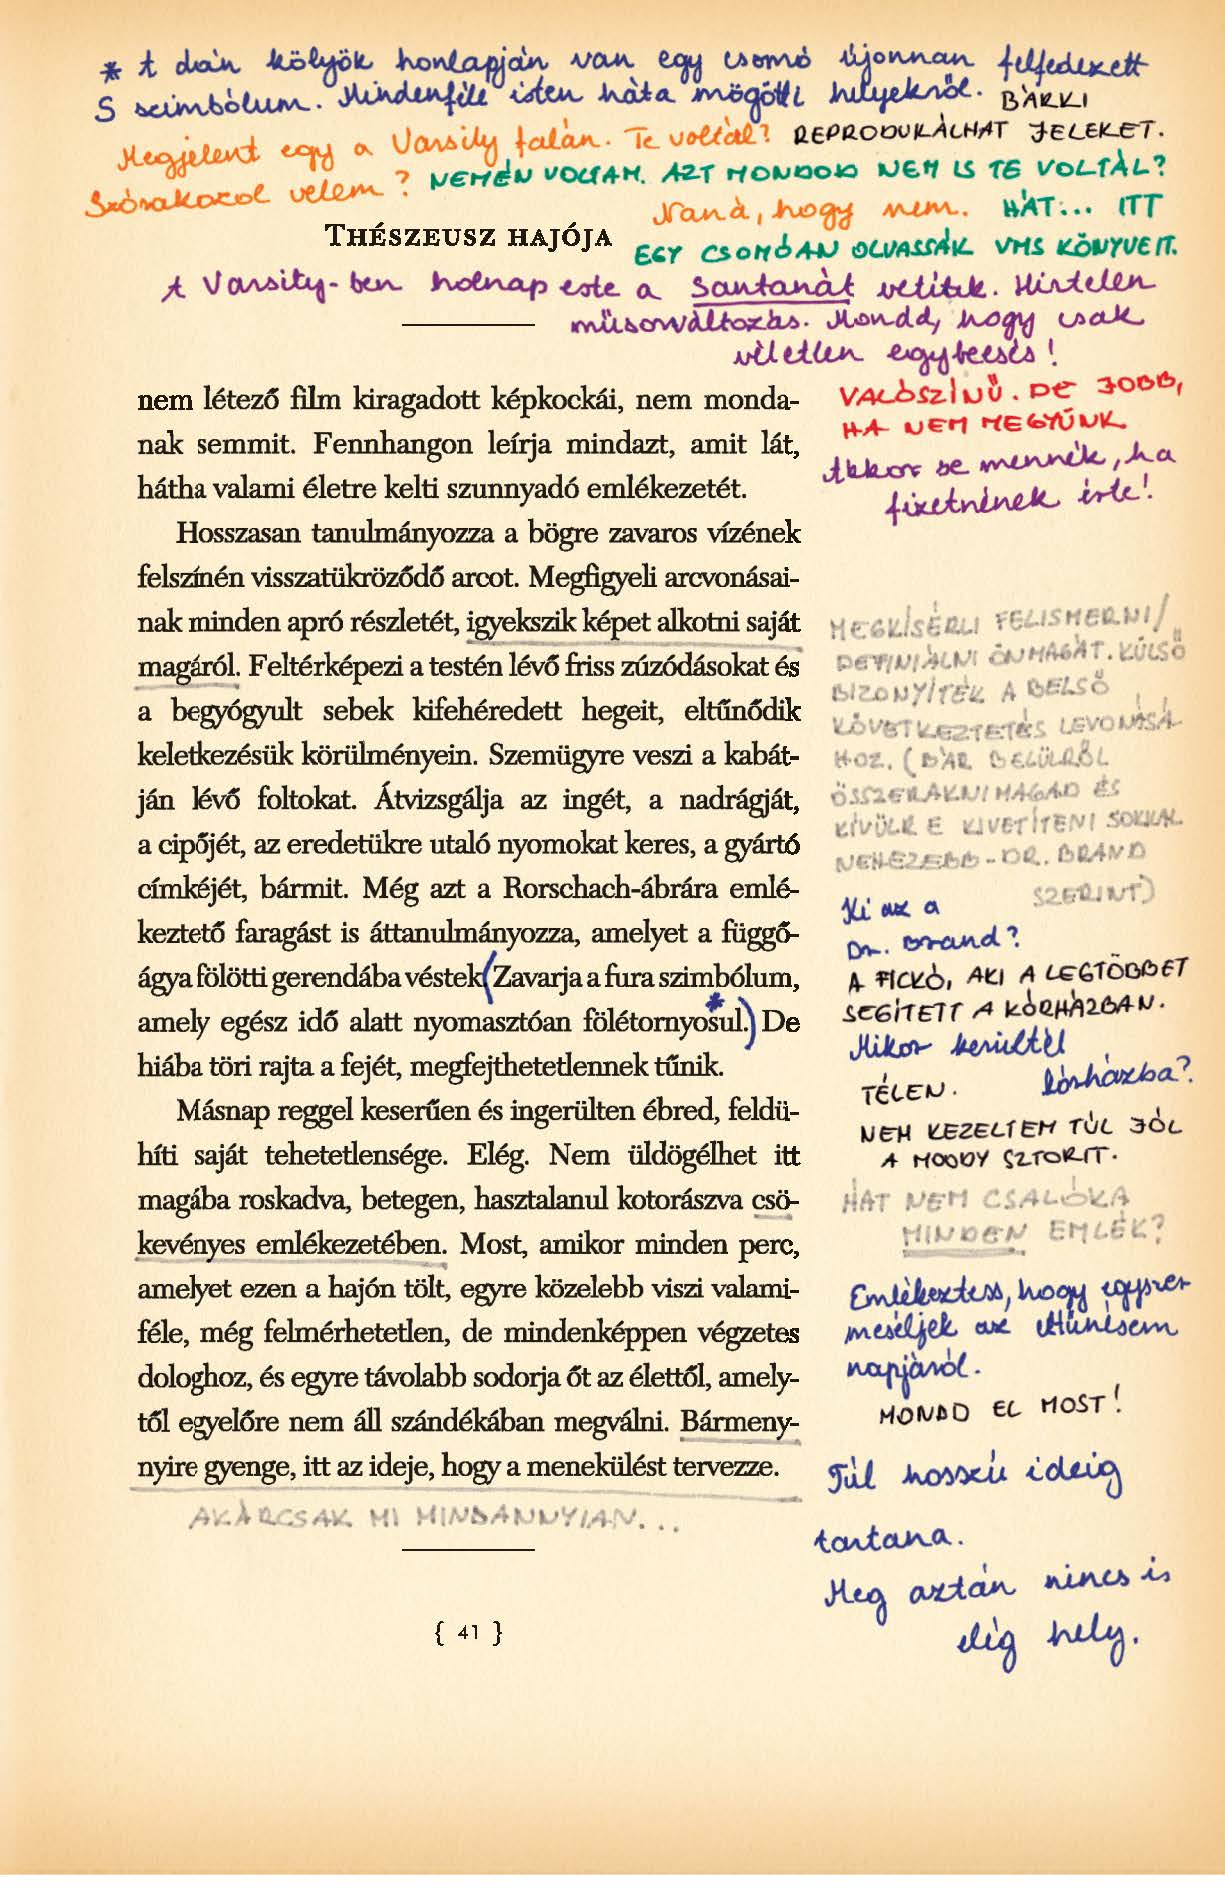 * A dán kölyök honlapján van egy csomó újonnan felfedezett
S szimbólum. Mindenféle isten háta mögötti helyekről. BÁRKI
REPRODUKÁLHAT JELEKET.
Megjelent egy a Varsity falán. Te voltál?
NEM ÉN VOLTAM. AZT MONDOD NEM IS TE VOLTÁL?
Szórakozol velem?
Naná, hogy nem. HÁT... ITT
EGY CSOMÓAN OLVASSÁK VMS KÖNYVEIT.
THÉSZEUSZ HAJÓJA
A Varsity-ben holnap este a Santanát vetítik. Hirtelen
műsorváltozás. Mondd, hogy csak
véletlen egybeesés!
VALÓSZÍNŰ. DE JOBB,
HA NEM MEGYÜNK.
Akkor se mennék, ha
fizetnének érte!
nem létező film kiragadott képkockái, nem monda-
nak semmit. Fennhangon leírja mindazt, amit lát,
hátha valami életre kelti szunnyadó emlékezetét.
Hosszasan tanulmányozza a bögre zavaros vízének
felszínén visszatükröződő arcot. Megfigyeli arcvonásai-
nak minden apró részletét, igyekszik képet alkotni saját
magáról. Feltérképezi a testén lévő friss zúzódásokat és
a begyógyult sebek kifehéredett hegeit, eltűnődik
keletkezésük körülményein. Szemügyre veszi a kabát-
ján lévő foltokat. Átvizsgálja az ingét, a nadrágját,
a cipőjét, az eredetükre utaló nyomokat keres, a gyártó
címkéjét, bármit. Még azt a Rorschach-ábrára emlé-
keztető faragást is áttanulmányozza, amelyet a függő-
ágya fölötti gerendába véstek(Zavarja a fura szimbólum,
amely egész idő alatt nyomasztóan fölétornyosul.*) De
hiába töri rajta a fejét, megfejthetetlennek tűnik.
Másnap reggel keserűen és ingerülten ébred, feldü-
híti saját tehetetlensége. Elég. Nem üldögélhet itt
magába roskadva, betegen, hasztalanul kotorászva csö-
kevényes emlékezetében. Most, amikor minden perc,
amelyet ezen a hajón tölt, egyre közelebb viszi valami-
féle, még felmérhetetlen, de mindenképpen végzetes
dologhoz, és egyre távolabb sodorja őt az élettől, amely-
től egyelőre nem áll szándékában megválni. Bármeny-
nyire gyenge, itt az ideje, hogy a menekülést tervezze.
AKÁRCSAK MI MINDANNYIAN...
MEGKÍSÉRLI FELISMERNI/
DEFINIÁLNI ÖNMAGÁT. KÜLSŐ
BIZONYÍTÉK A BELSŐ
KÖVETKEZTETÉS LEVONÁSÁ-
HOZ. (BÁR BELÜLRŐL
ÖSSZERAKNI MAGAD ÉS
KÍVÜLRE KIVETÍTENI SOKKAL
NEHEZEBB - DR. BRAND
SZERINT)
Ki az a
Dr. Brand?
A FICKÓ, AKI A LEGTÖBBET
SEGÍTETT A KÓRHÁZBAN.
Mikor kerültél
kórházba?
TÉLEN.
NEM KEZELTEM TÚL JÓL
A MOODY SZTORIT.
HÁT NEM CSALÓKA
MINDEN EMLÉK?
Emlékeztess, hogy egyszer
meséljek az eltűnésem
napjáról.
MONDD EL MOST!
Túl hosszú ideig
tartana.
Meg aztán nincs is
elég hely.
{ 41 }